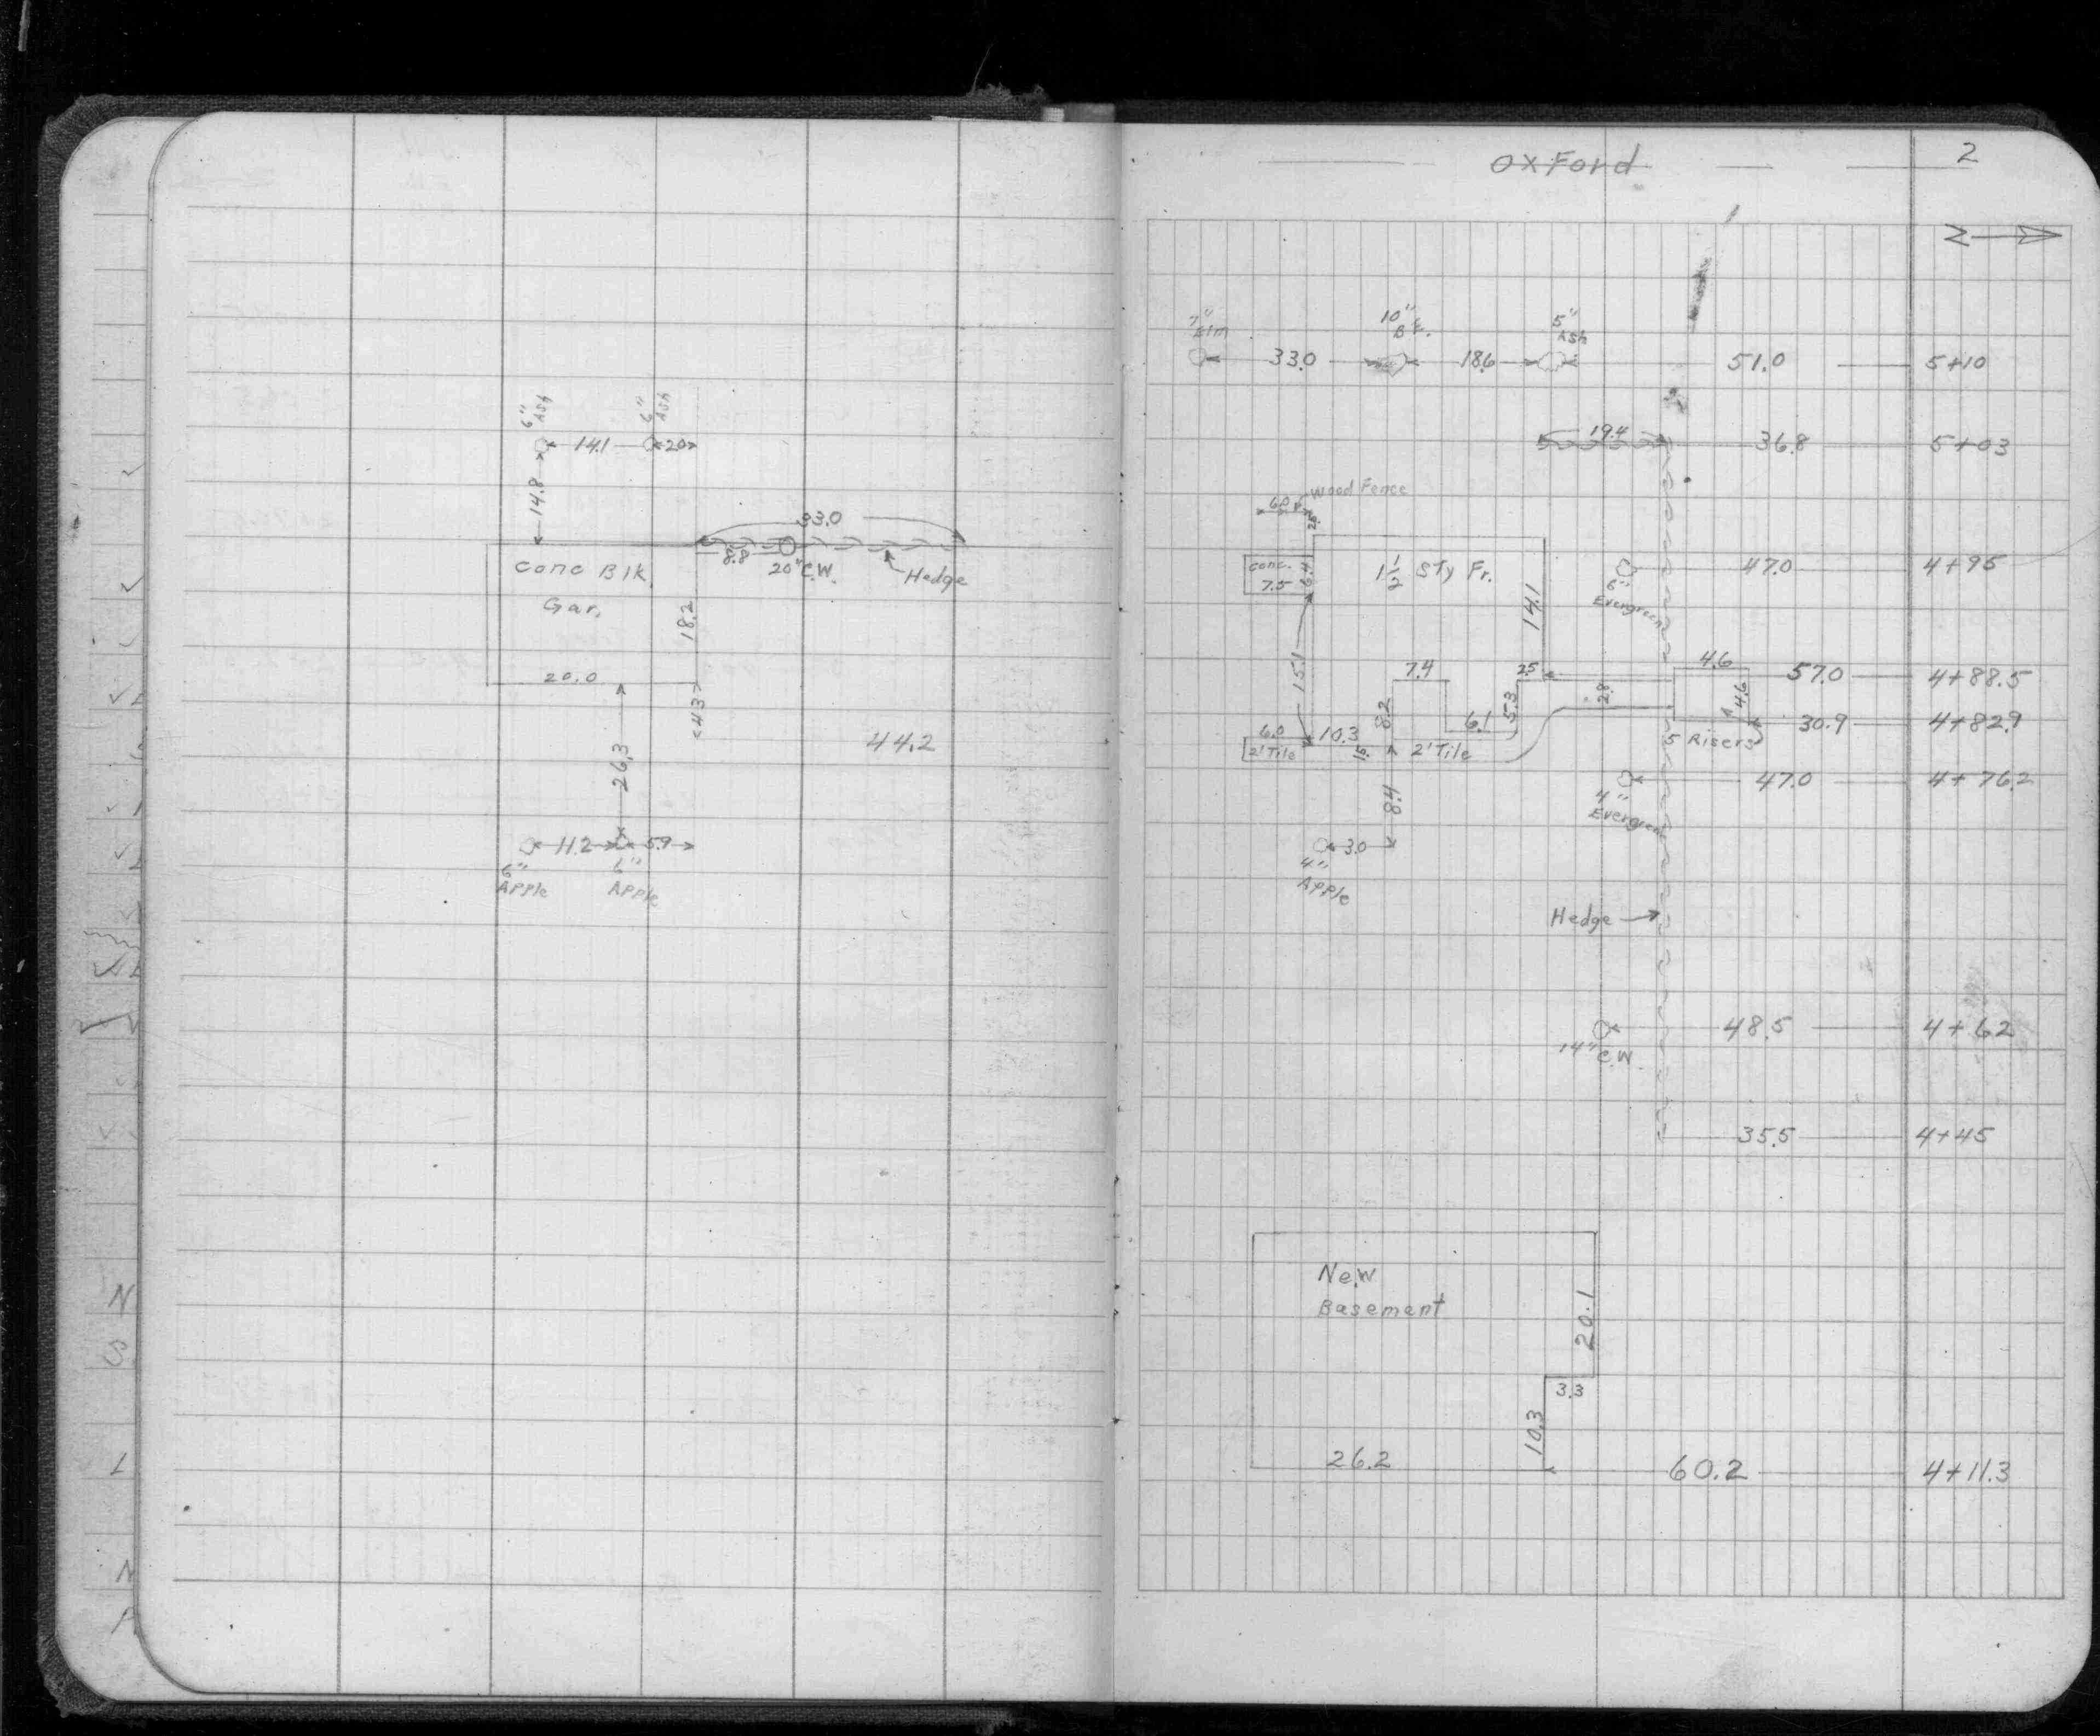 6" Ash
6" Ash
14.1
20
14.8
33.0
8.8
20" C.W.
Hedge
Conc Blk.
Gar.
18.2
20.0
43
44.2
26.3
11.2
5.9
6" Apple
6" Apple
Oxford
2
N
7" Elm
10" B.E.
5" Ash
33.0
18.6
51.0
5+10
19.4
36.8
5+03
Wood Fence
6.0
Conc.
7.5
6.4
1 1/2 Sty Fr.
14.1
6" Evergreen
47.0
4+95
15.1
7.4
25
4.6
57.0
4+88.5
8.2
6.1
5.3
2.8
4.6
30.9
4+82.9
5 Risers
6.0
2' Tile
10.3
2' Tile
47.0
4+76.2
4" Evergreen
8.4
3.0
4" Apple
Hedge
48.5
4+62
14" C.W.
35.5
4+45
New
Basement
20.1
3.3
10.3
26.2
60.2
4+11.3